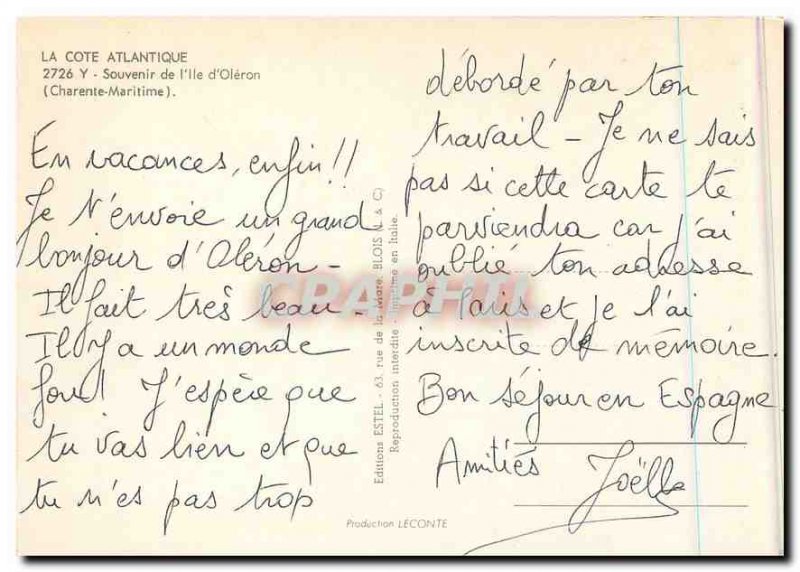 LA COTE ATLANTIQUE
2726 Y - Souvenir de l'Ile d'Oléron
(Charente-Maritime).
En vacances, enfin!!
Je t'envoie un grand
bonjour d'Oléron -
Il fait très beau -
Il y a un monde
fou! J'espère que
tu vas bien et que
tu n'es pas trop
débordé par ton
travail - Je ne sais
pas si cette carte te
parviendra car j'ai
oublié ton adresse
à Paris et je l'ai
inscrite de mémoire.
Bon séjour en Espagne
Amitiés Joëlle
Editions ESTEL - 63, rue de la Mare, BLOIS (L. & C)
Reproduction interdite - Imprimé en Italie.
Production LECONTE
CPAPHIL